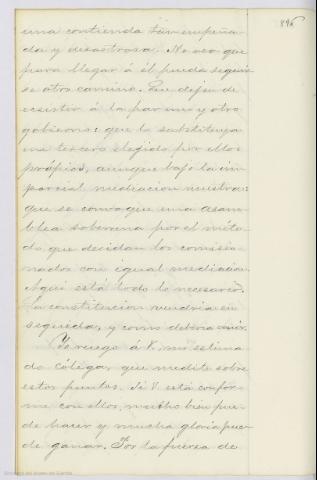 896
una contienda tan empeña-
da y desastrosa. No veo que
para llegar á él pueda seguir-
se otro camino. Que dejen de
ecsistir á la par uno y otro
gobierno: que lo substituya
un tercero elegido por ellos
própios, aunque bajo la im-
parcial mediacion nuestra:
que se convoque una asam-
blea soberana por el méto-
do que decidan los comisio-
nados con igual mediacion.
Aqui está todo lo necesario.
La constitucion vendria en
seguida, y como deberia venir.
Yo ruego á V. mi estima-
do cólega, que medite sobre
estos puntos. Si V. está confor-
me con ellos, mucho bien pue-
de hacer y mucha gloria pue-
de ganar. Por la fuerza de